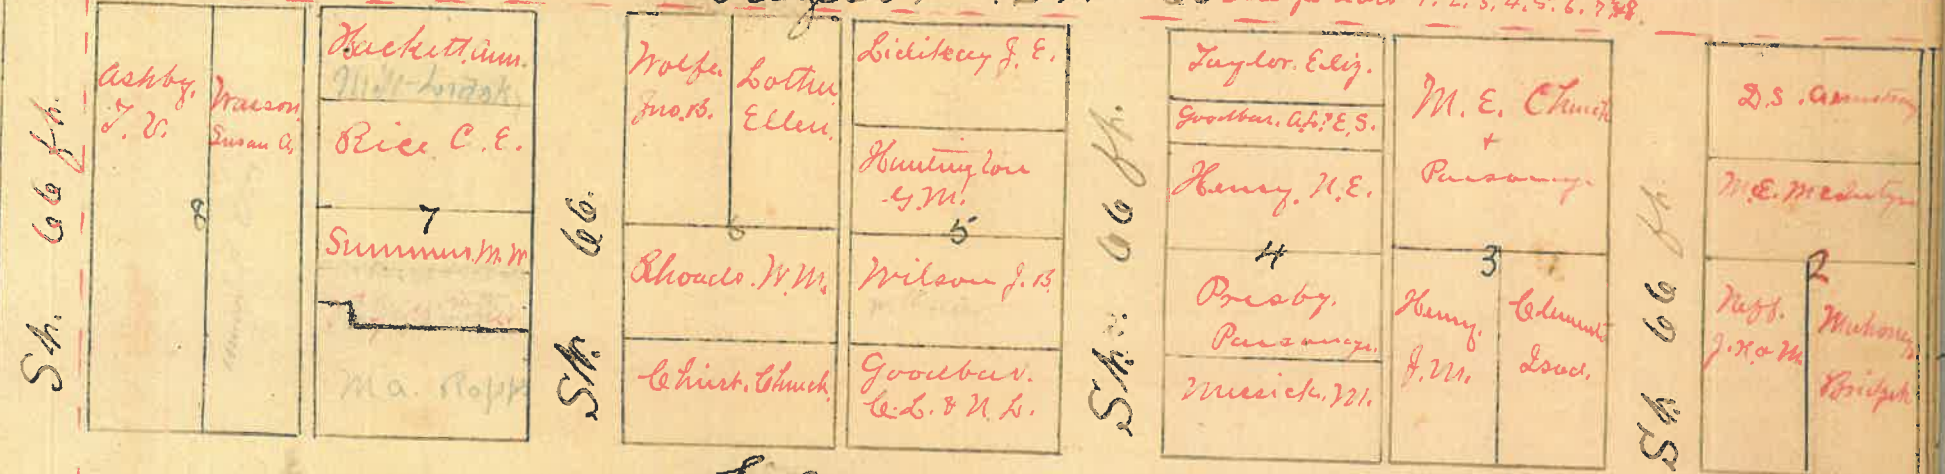 1. 2. 3. 4. 5. 6. 7 & 8.
St. 66 ft.
Ashby.
T. V.
Susan A.
8
Hackett. Ann.
Rice C. E.
7
Summers. M. W
M a. Ropp
St. 66.
Wolfe.
Jno. B.
Lother
Ellen.
6
Rhoads. W. M.
Christ. Church
Lidikay J. E.
Huntington
G. M.
5
Wilson J. B.
Goodbar.
C. L. & N. L.
St. 66 ft.
Taylor. Eliz.
Goodbar. A. L. & E. S.
Henry. N. E.
4
Presby.
Parsonage.
Messick. M.
M. E. Church
+
Parsonage
3
Henry.
J. M.
Clements
Isad.
St. 66 ft.
D. S. Armstrong
M. E. McIntyre
2
Neff.
J. K. & M
Mahoney
Bridget